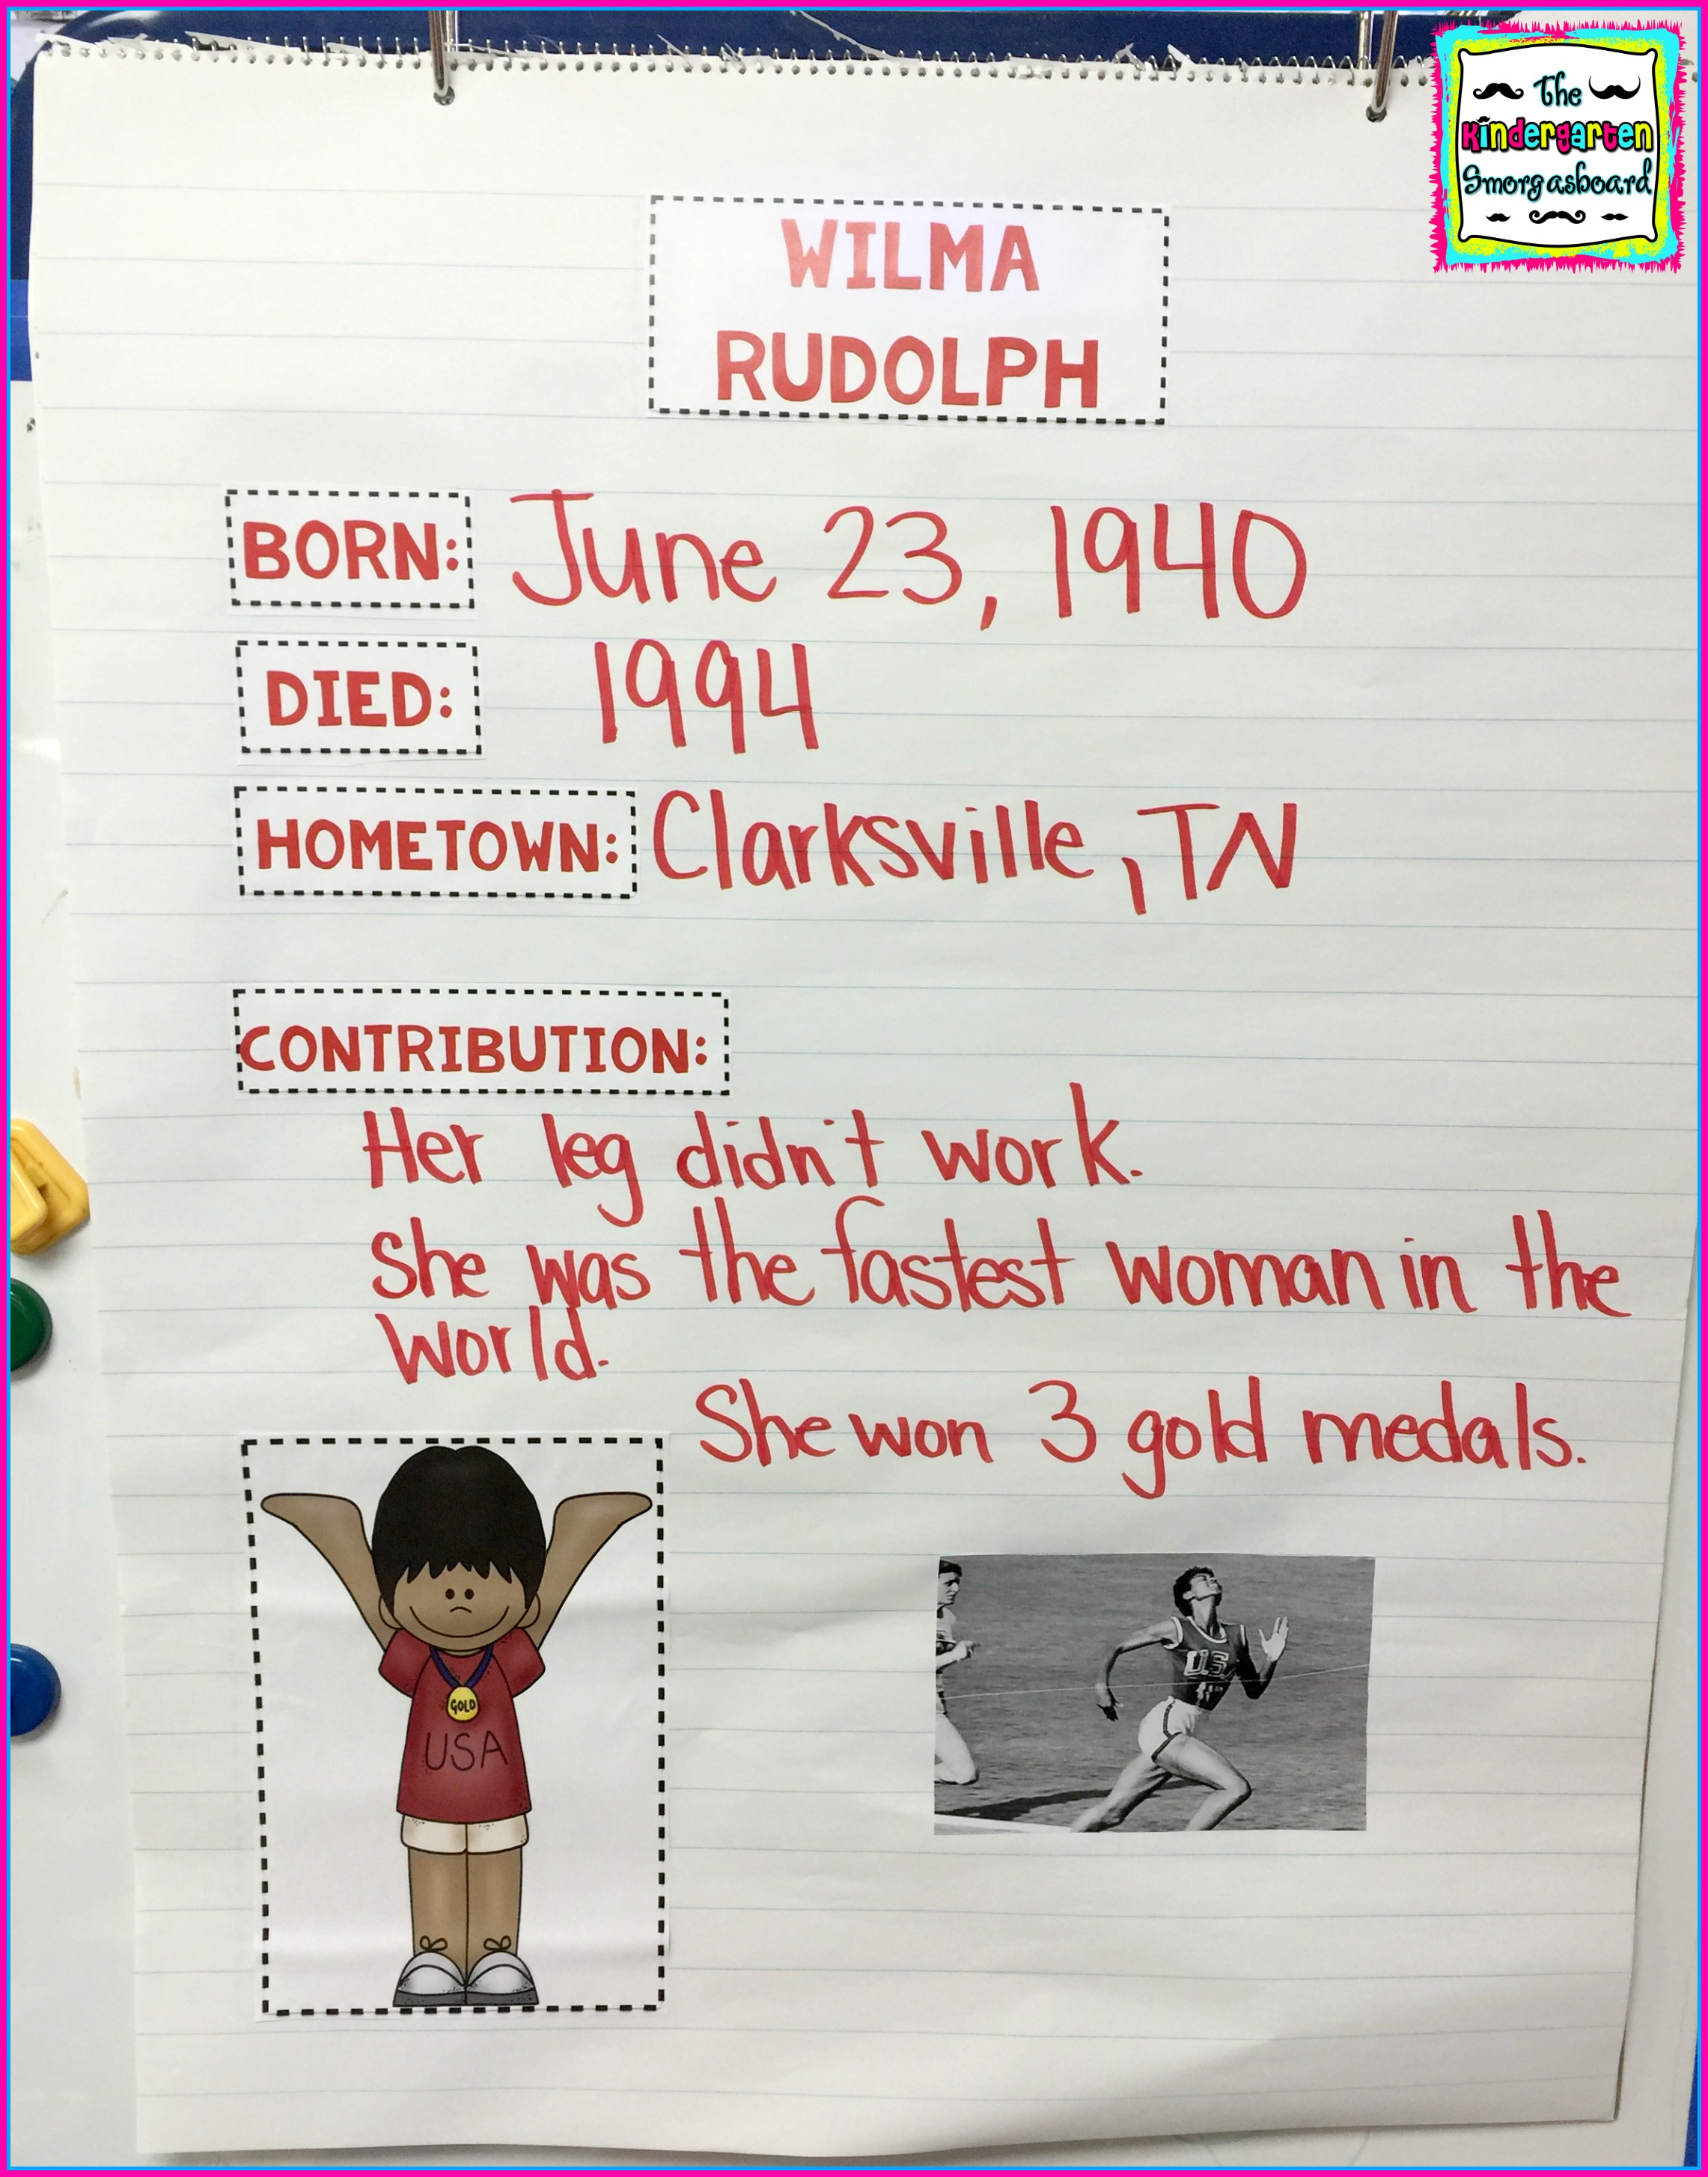 The
Kindergarten
Smorgasboard
WILMA
RUDOLPH
BORN: June 23, 1940
DIED: 1994
HOMETOWN: Clarksville, TN
CONTRIBUTION:
Her leg didn't work.
She was the fastest woman in the
world.
She won 3 gold medals.
GOLD
USA
U.S.